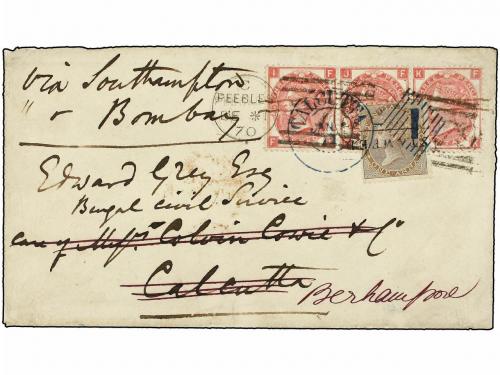 via Southampton
" & Bombay
I F J F K F
C
PEEBLES
70
CALCUTTA
Edward Grey Esq
Bengal Civil Service
care of Messrs Colvin Cowie & Co
Calcutta
Berhampore